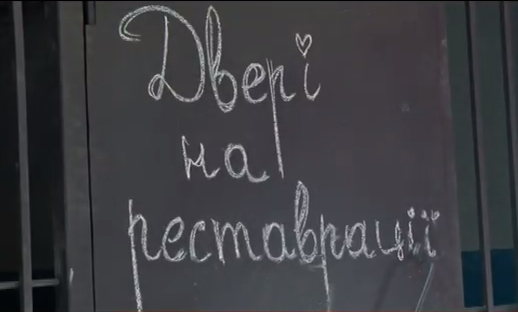 Двері
на
реставрації